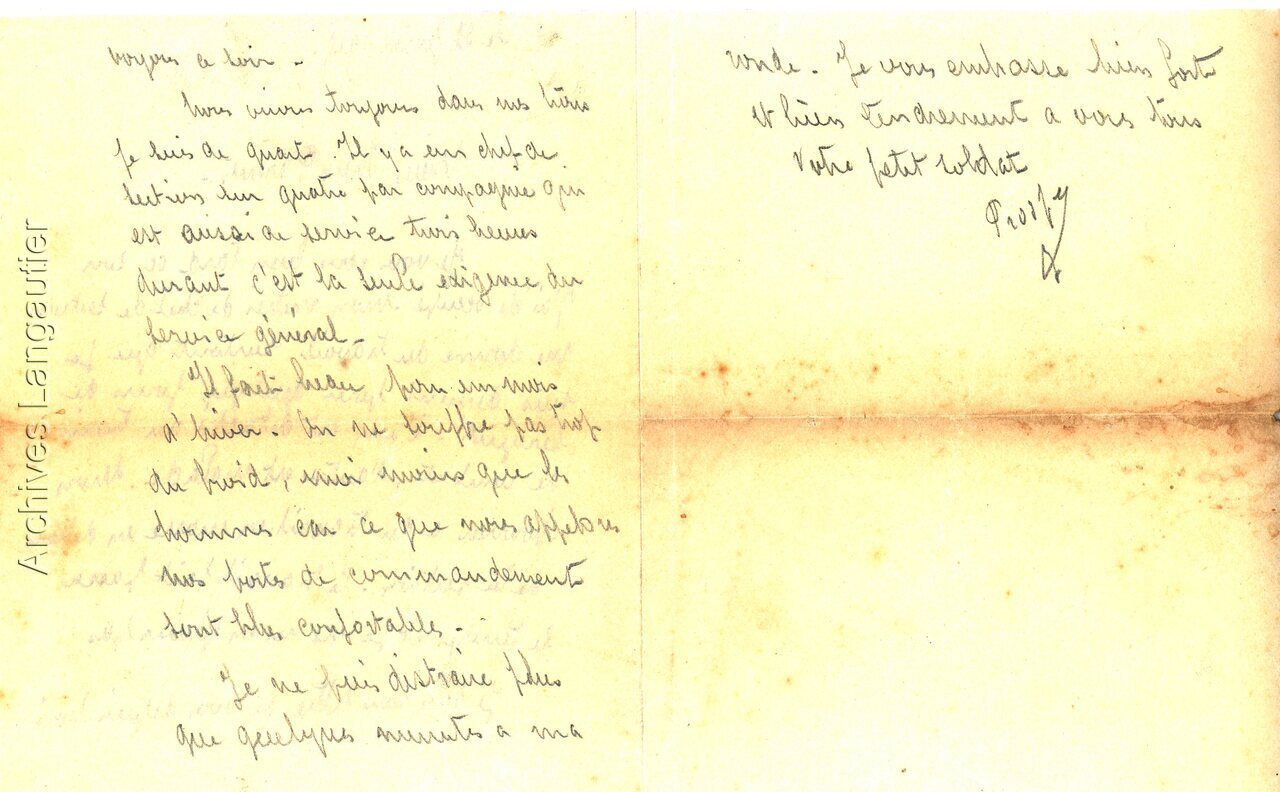 voyons ce soir -
Nous vivons toujours dans nos
Je suis de quart. Il y a un chef de
section sur quatre par compagnie qui
est aussi de service trois heures
durant c'est la seule exigence du
service général -
Il fait beau, pour un mois
d'hiver. On ne souffre pas trop
du froid, moi moins que les
hommes car ce que nous appelons
nos postes de commandement
sont très confortables -
Je ne puis distraire plus
que quelques minutes a ma
ronde. Je vous embrasse bien fort
et bien tendrement a vous tous
Votre petit soldat
Archives Langautier